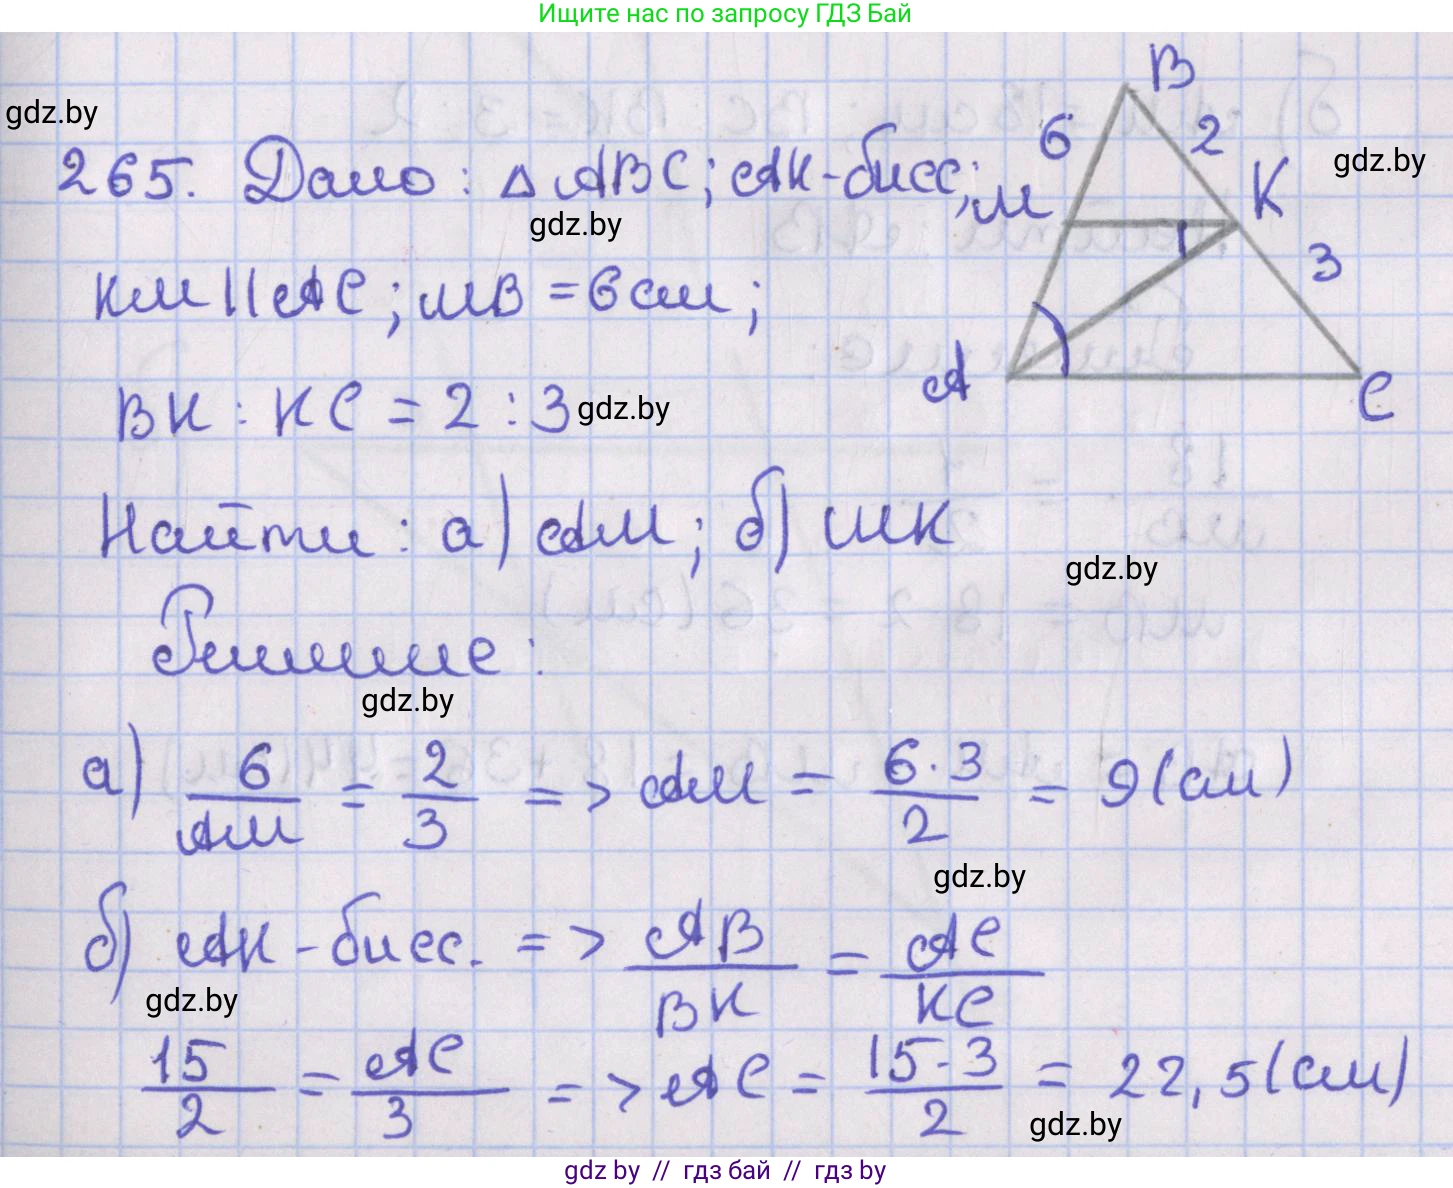 Ищите нас по запросу ГДЗ Бай
gdz.by
265. Дано: △ ABC; AK-бисс;
gdz.by
gdz.by
KM || AC; MB = 6 см;
BK : KC = 2 : 3
gdz.by
Найти: а) AM; б) MK
gdz.by
Решение:
gdz.by
а) 6/AM = 2/3 => AM = 6·3/2 = 9 (см)
gdz.by
б) AK - бисс. => AB/BK = AC/KC
gdz.by
15/2 = AC/3 => AC = 15·3/2 = 22,5 (см)
gdz.by
B
6
2
M
K
1
3
A
C
gdz by // гдз бай // гдз by